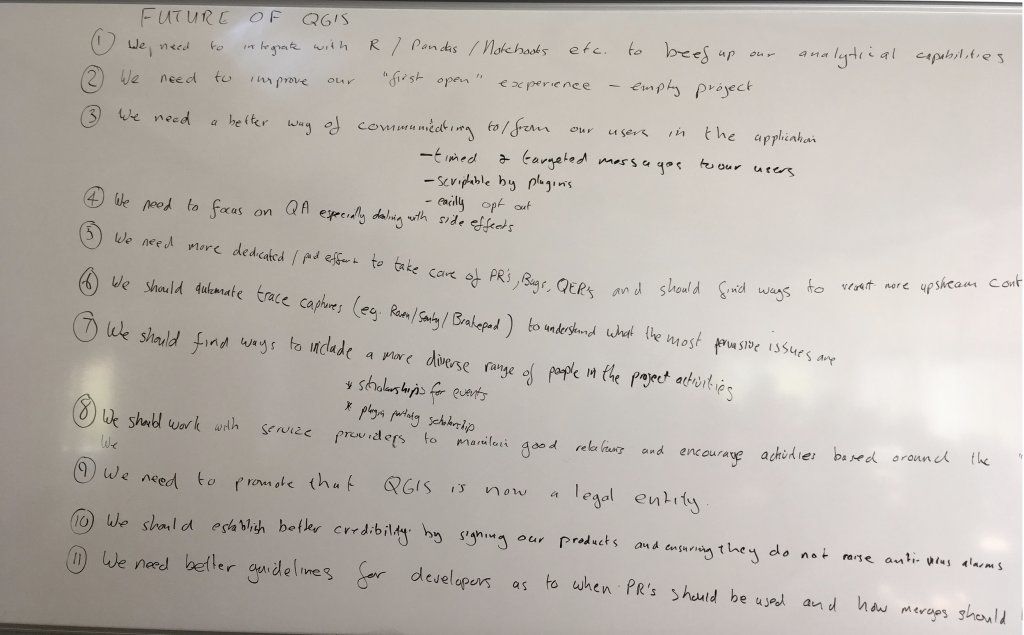 FUTURE OF QGIS
① We need to integrate with R / Pandas / Notebooks etc. to beef up our analytical capabilities
② We need to improve our "first open" experience – empty project
③ We need a better way of communicating to/from our users in the application
– timed & targeted messages to our users
– scriptable by plugins
– easily opt out
④ We need to focus on QA especially dealing with side effects
⑤ We need more dedicated / paid effort to take care of PR's, Bugs, QEPs and should find ways to more upstream cont
⑥ We should automate trace captures (eg. Raven/Sentry/Brakepad) to understand what the most pervasive issues are
⑦ We should find ways to include a more diverse range of people in the project activities
* scholarships for events
* plugin porting scholarship
⑧ We should work with service providers to maintain good relations and encourage activities based around the
We
⑨ We need to promote that QGIS is now a legal entity.
⑩ We should establish better credibility by signing our products and ensuring they do not raise anti-virus alarms
⑪ We need better guidelines for developers as to when PR's should be used and how merges should